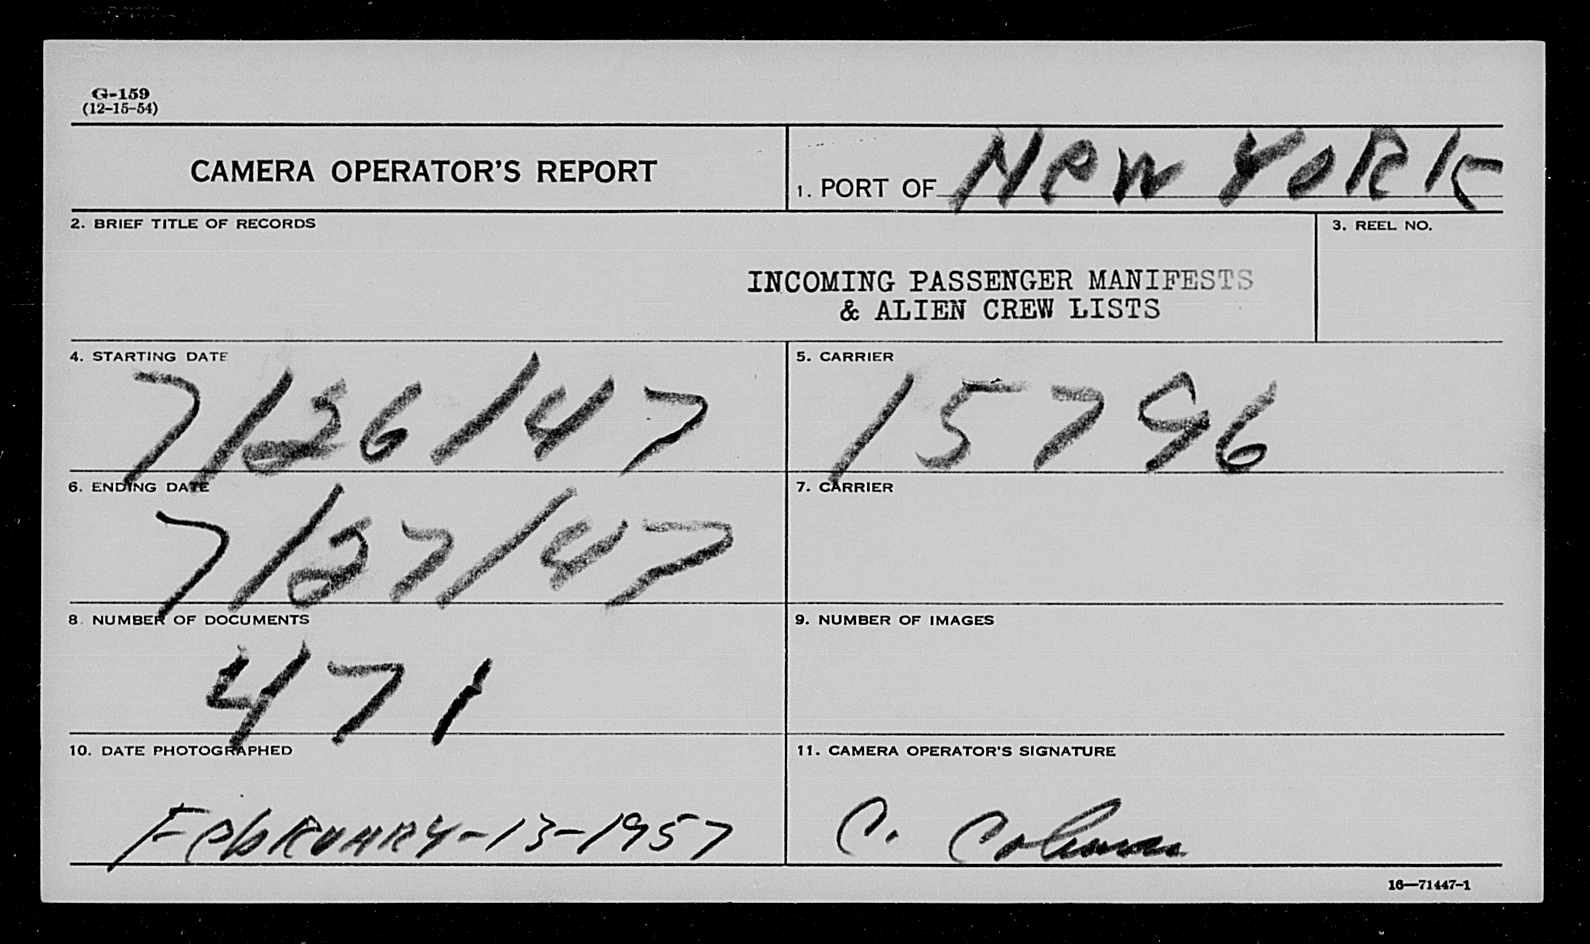 G-159
(12-15-54)
CAMERA OPERATOR'S REPORT
1. PORT OF New YORK
2. BRIEF TITLE OF RECORDS
3. REEL NO.
INCOMING PASSENGER MANIFESTS
& ALIEN CREW LISTS
4. STARTING DATE
7/26/47
5. CARRIER
15796
6. ENDING DATE
7/27/47
7. CARRIER
8. NUMBER OF DOCUMENTS
471
9. NUMBER OF IMAGES
10. DATE PHOTOGRAPHED
FebRUARY-13-1957
11. CAMERA OPERATOR'S SIGNATURE
C.
16—71447-1